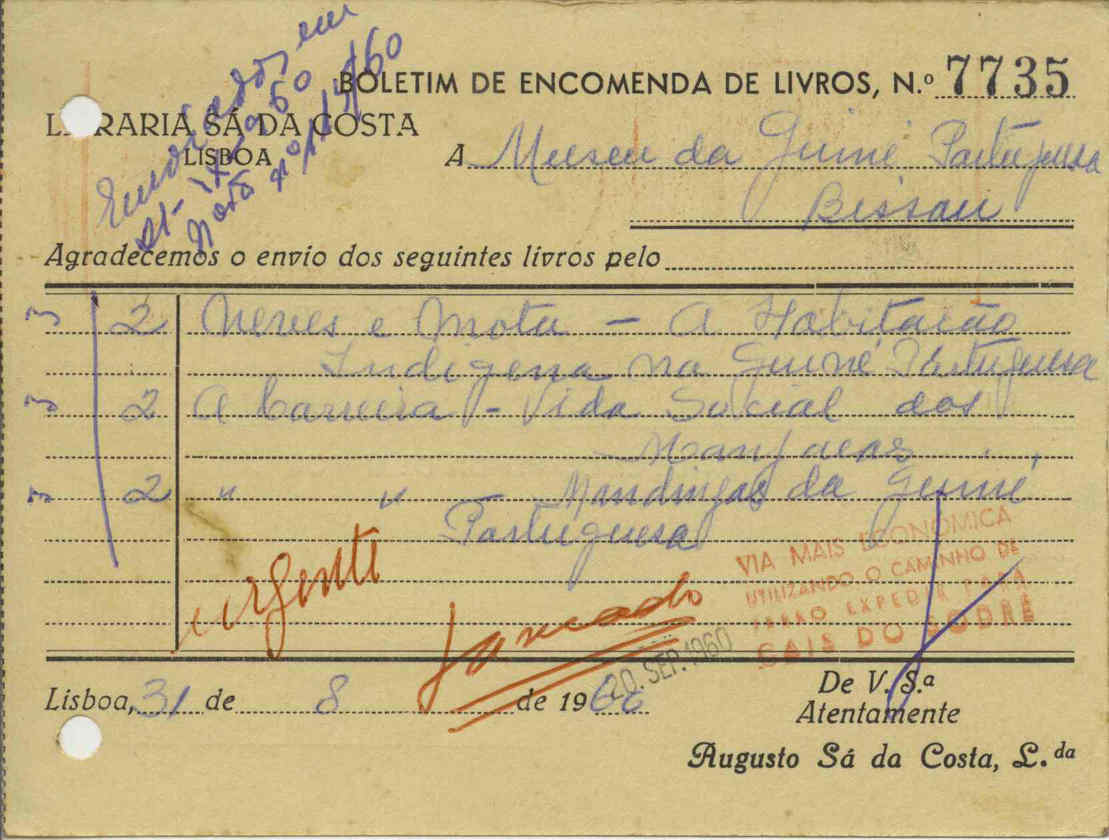 Enviados em
21-IX-960
Nota nº 174/60
BOLETIM DE ENCOMENDA DE LIVROS, N.º 7735
LIVRARIA SÁ DA COSTA
LISBOA
A Museu da Guiné Portuguesa
Bissau
Agradecemos o envio dos seguintes livros pelo
3 2 Neves e Mota - A Habitação
Indigena na Guiné Portuguesa
3 2 A Carreira - Vida Social dos
Manjacas
3 2 " " - Mandingas da Guiné
Portuguesa
urgente
Lançado
VIA MAIS ECONOMICA
UTILIZANDO O CAMINHO DE
FERRO EXPEDIR PARA
CAIS DO SODRÉ
20. SEP. 1960
Lisboa, 31 de 8 de 1960
De V. S.ª
Atentamente
Augusto Sá da Costa, L.da